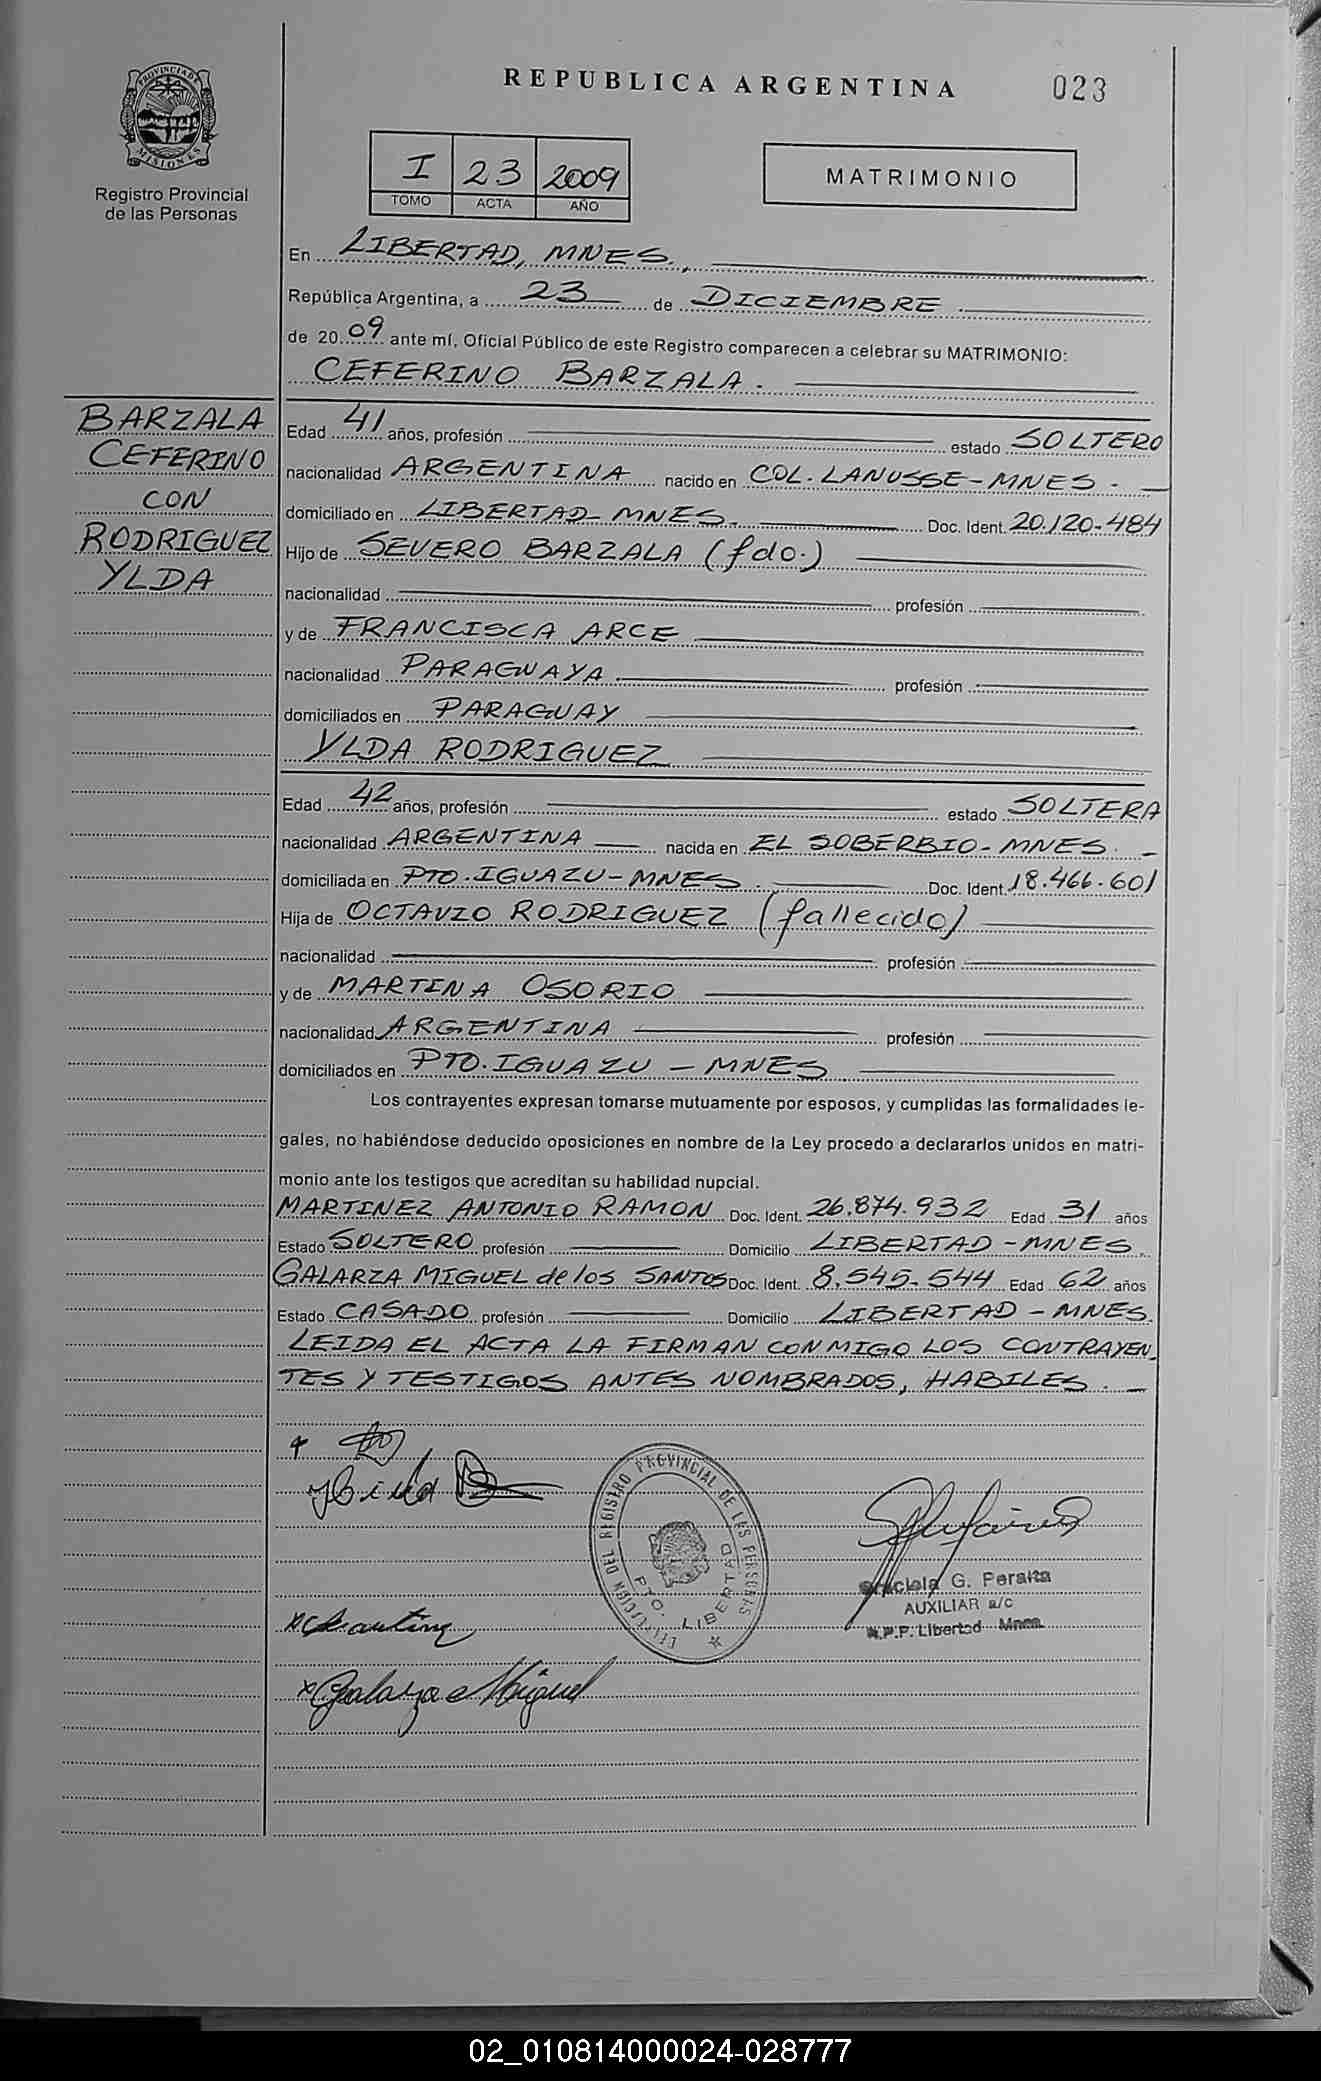 REPUBLICA ARGENTINA
023
PROVINCIA DE
MISIONES
Registro Provincial
de las Personas
I 23 2009
TOMO ACTA AÑO
MATRIMONIO
En LIBERTAD, MNES.,
República Argentina, a 23 de DICIEMBRE
de 2009 ante mí, Oficial Público de este Registro comparecen a celebrar su MATRIMONIO:
CEFERINO BARZALA.
BARZALA
CEFERINO
CON
RODRIGUEZ
YLDA
Edad 41 años, profesión estado SOLTERO
nacionalidad ARGENTINA nacido en COL. LANUSSE-MNES.
domiciliado en LIBERTAD-MNES. Doc. Ident. 20.120-484
Hijo de SEVERO BARZALA (fdo.)
nacionalidad profesión
y de FRANCISCA ARCE
nacionalidad PARAGUAYA. profesión
domiciliados en PARAGUAY
YLDA RODRIGUEZ
Edad 42 años, profesión estado SOLTERA
nacionalidad ARGENTINA nacida en EL SOBERBIO-MNES.
domiciliada en PTO.IGUAZU-MNES. Doc. Ident. 18.466.601
Hija de OCTAVIO RODRIGUEZ (fallecido)
nacionalidad profesión
y de MARTINA OSORIO
nacionalidad ARGENTINA profesión
domiciliados en PTO.IGUAZU - MNES
Los contrayentes expresan tomarse mutuamente por esposos, y cumplidas las formalidades le-
gales, no habiéndose deducido oposiciones en nombre de la Ley procedo a declararlos unidos en matri-
monio ante los testigos que acreditan su habilidad nupcial.
MARTINEZ ANTONIO RAMON Doc. Ident. 26.874.932 Edad 31 años
Estado SOLTERO profesión Domicilio LIBERTAD-MNES.
GALARZA MIGUEL de los SANTOS Doc. Ident. 8.545-544 Edad 62 años
Estado CASADO profesión Domicilio LIBERTAD-MNES.
LEIDA EL ACTA LA FIRMAN CONMIGO LOS CONTRAYEN
TES Y TESTIGOS ANTES NOMBRADOS, HABILES.
DEL REGISTRO PROVINCIAL DE LAS PERSONAS
PTO. LIBERTAD
Graciela G. Peralta
AUXILIAR a/c
R.P.P. Libertad - Mnes.
x Galarza Miguel
02_010814000024-028777